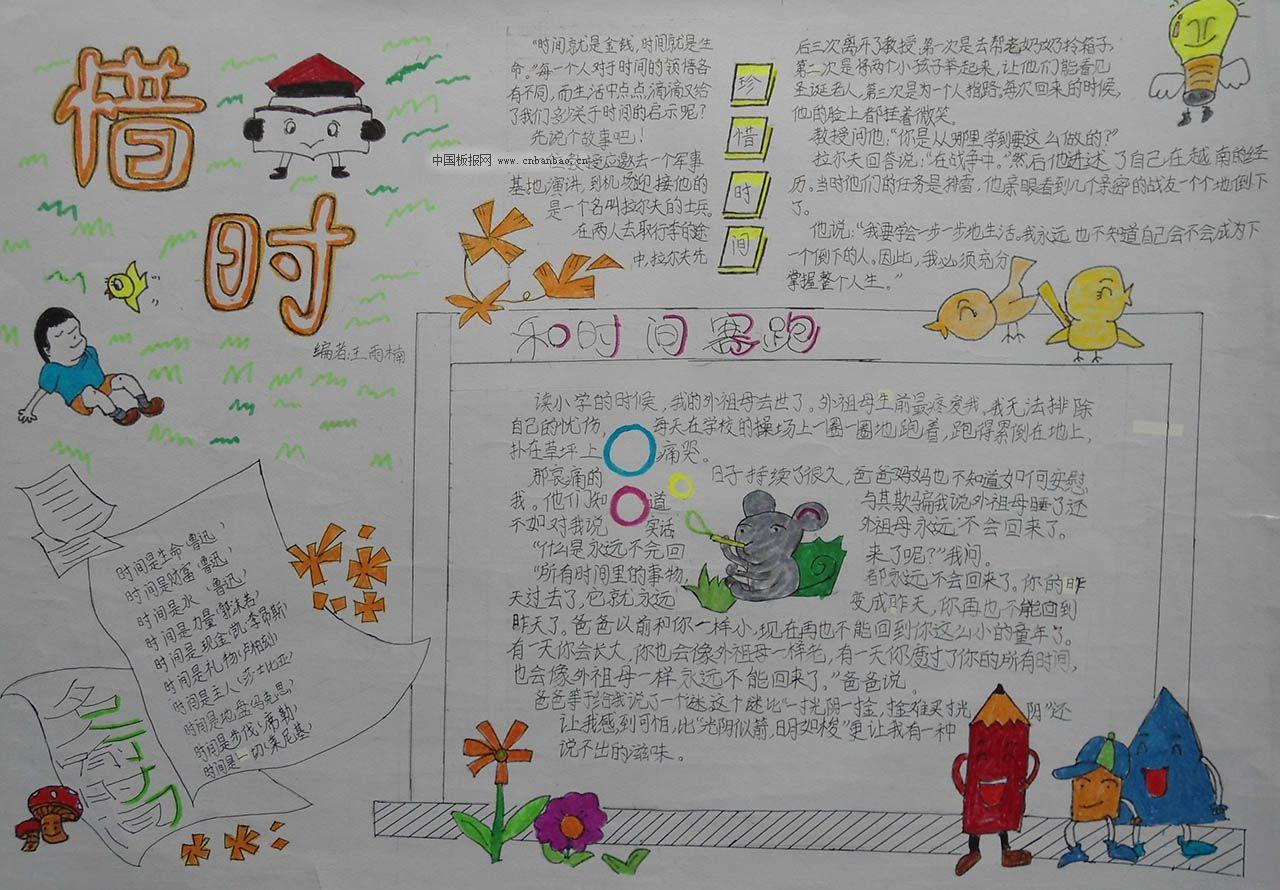 惜
时
编者:王雨楠
中国板报网 www.cnbanbao.cn
“时间就是金钱,时间就是生
命。”每一个人对于时间的领悟各
有不同,而生活中点点滴滴又给
了我们多少关于时间的启示呢?
先说个故事吧!
教授应邀去一个军事
基地演讲,到机场迎接他的
是一个名叫拉尔夫的士兵。
在两人去取行李的途
中,拉尔夫先
珍
惜
时
间
后三次离开了教授,第一次是去帮老奶奶拎箱子。
第二次是将两个小孩子举起来,让他们能看见
圣诞老人,第三次是为一个人指路;每次回来的时候,
他的脸上都挂着微笑。
教授问他:“你是从哪里学到要这么做的?”
拉尔夫回答说:“在战争中。”然后他进述了自己在越南的经
历。当时他们的任务是排雷,他亲眼看到几个亲密的战友一个个地倒下
了。
他说:“我要学会一步一步地生活。我永远也不知道自己会不会成为下
一个倒下的人。因此,我必须充分
掌握整个人生。”
和时间赛跑
读小学的时候,我的外祖母去世了。外祖母生前最疼爱我。我无法排除
自己的忧伤,每天在学校的操场上一圈一圈地跑着,跑得累倒在地上,
扑在草坪上痛哭。
那哀痛的日子持续了很久,爸爸妈妈也不知道如何安慰
我。他们知道与其欺骗我说外祖母睡了还
不如对我说实话外祖母永远不会回来了。
“什么是永远不完回来了呢?”我问。
“所有时间里的事物,都永远不会回来了。你的昨
天过去了,它就永远变成昨天,你再也不能回到
昨天了。爸爸以前和你一样小,现在再也不能回到你这么小的童年了。
有一天你会长大,你也会像外祖母一样老,有一天你度过了你的所有时间,
也会像外祖母一样永远不能回来了。”爸爸说。
爸爸等于给我说了一个谜,这个谜比“一寸光阴一寸金,寸金难买寸光阴”还
让我感到可怕,比“光阴似箭,日月如梭”更让我有一种
说不出的滋味。
时间是生命(鲁迅)
时间是财富(鲁迅)
时间是水(鲁迅)
时间是力量(郭沫若)
时间是现金(凯·李昂斯)
时间是礼物(卢柏刻)
时间是主人(莎士比亚)
时间是地盘(马克思)
时间是当代(席勒)
时间是一切(莱尼基)
名言